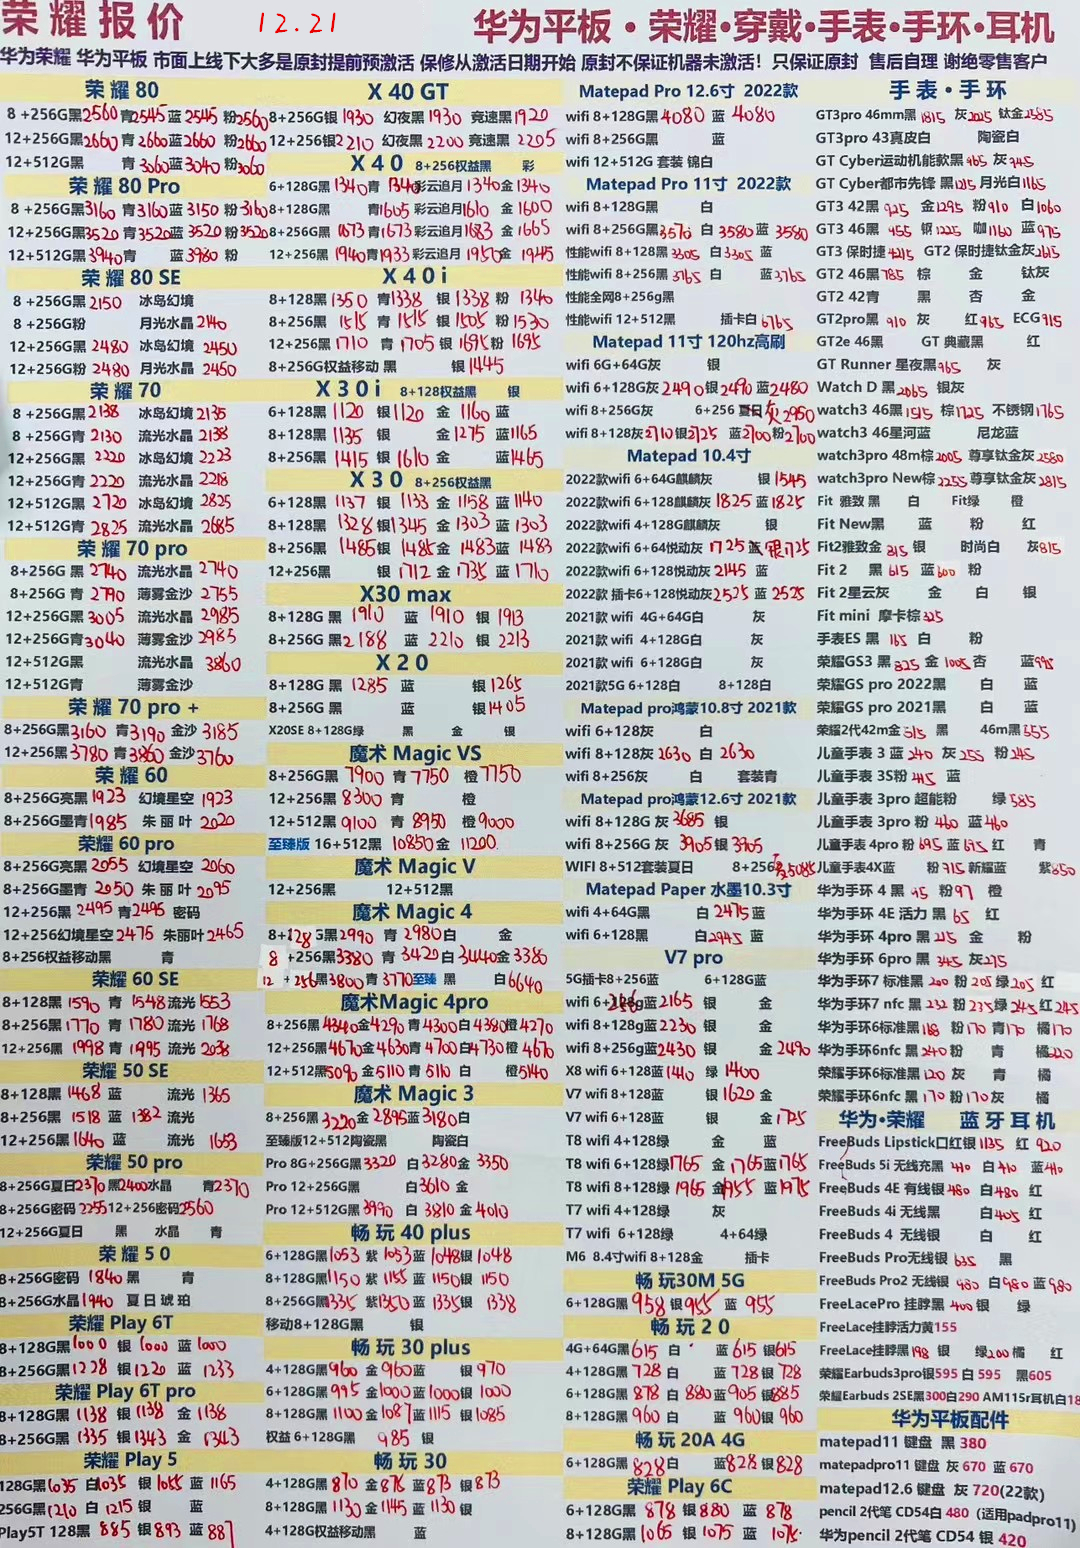 荣耀报价 12.21 华为平板·荣耀·穿戴·手表·手环·耳机
华为荣耀 华为平板 市面上线下大多是原封提前预激活 保修从激活日期开始 原封不保证机器未激活！只保证原封 售后自理 谢绝零售客户
荣耀80
8+256G黑2560 青2545 蓝2545 粉2560
12+256G黑2660 青2660 蓝2660 粉2660
12+512G黑 青3060 蓝3040 粉3060
荣耀80 Pro
8+256G黑3160 青3160 蓝3150 粉3160
12+256G黑3520 青3520 蓝3520 粉3520
12+512G黑3940 青 蓝3980 粉
荣耀80 SE
8+256G黑2150 冰岛幻境
8+256G粉 月光水晶2140
12+256G黑2480 冰岛幻境2450
12+256G粉2480 月光水晶2450
荣耀70
8+256G黑2138 冰岛幻境2135
8+256G青2130 流光水晶2138
12+256G黑2220 冰岛幻境2223
12+256G青2220 流光水晶2218
12+512G黑2720 冰岛幻境2825
12+512G青2825 流光水晶2685
荣耀70 pro
8+256G黑2740 流光水晶2740
8+256G青2790 薄雾金沙2755
12+256G黑3005 流光水晶2985
12+256G青3040 薄雾金沙2985
12+512G黑 流光水晶3860
12+512G青 薄雾金沙
荣耀70 pro +
8+256G黑3160 青3190 金沙3185
12+256黑3780 青3860 金沙3760
荣耀60
8+256G亮黑1923 幻境星空1923
8+256G墨青1985 朱丽叶2020
荣耀60 pro
8+256G亮黑2055 幻境星空2060
8+256G墨青2050 朱丽叶2095
12+256黑2495 青2495 密码
12+256幻境星空2475 朱丽叶2465
8+256权益移动黑 青
荣耀60 SE
8+128黑1590 青1548 流光1553
8+256黑1770 青1780 流光1768
12+256黑1998 青1995 流光2038
荣耀50 SE
8+128黑1468 蓝 流光1365
8+256黑1518 蓝1382 流光
12+256黑1640 蓝 流光1653
荣耀50 pro
8+256G夏日2370 黑2400 水晶 青2370
8+256G密码2255 12+256密码2560
12+256G夏日 黑 水晶 青
荣耀50
8+256G密码1840 黑 青
8+256G水晶1940 夏日琥珀
荣耀Play 6T
8+128G黑1000 银1000 蓝1000
8+256G黑1228 银1220 蓝1233
荣耀Play 6T pro
8+128G黑1138 银1138 金1138
8+256G黑1335 银1343 金1343
荣耀Play 5
128G黑1035 白1035 银1055 蓝1165
256G黑1210 白1215 银 蓝
Play5T 128黑885 银893 蓝887
X40 GT
8+256G银1930 幻夜黑1930 竞速黑1920
12+256银2210 幻夜黑2200 竞速黑2205
X40 8+256权益黑 彩
6+128G黑1340 青1340 彩云追月1340 金1340
8+128G黑 青1605 彩云追月1610 金1600
8+256G黑1673 青1673 彩云追月1683 金1665
12+256黑1940 青1933 彩云追月1950 金1945
X40i
8+128黑1350 青1338 银1338 粉1340
8+256黑1515 青1515 银1505 粉1530
12+256黑1710 青1705 银1695 粉1695
8+256G权益移动 黑 银1445
X30i 8+128权益黑 银
6+128黑1120 银1120 金1160 蓝
8+128黑1135 银 金1275 蓝1165
8+256黑1415 银1610 金 蓝1465
X30 8+256权益黑
6+128黑1137 银1133 金1158 蓝1140
8+128黑1328 银1345 金1303 蓝1303
8+256黑1485 银1485 金1483 蓝1483
12+256黑 银1712 金1735 蓝1710
X30 max
8+128G黑1910 蓝1910 银1913
8+256G黑2188 蓝2210 银2213
X20
8+128G黑1285 蓝 银1265
8+256G黑 蓝 银1405
X20SE 8+128G绿 黑 金 银
魔术 Magic VS
8+256G黑7900 青7750 橙7750
12+256黑8300 青 橙
12+512黑9100 青8950 橙9000
至臻版 16+512黑10850 金11200
魔术 Magic V
12+256黑 12+512黑
魔术 Magic 4
8+128G黑2990 青2980 白 金
8+256黑3380 青3420 白3440 金3380
12+256黑3800 青3770 至臻 黑 白6640
魔术Magic 4pro
8+256黑4340 金4290 青4300 白4380 橙4270
12+256黑4670 金4630 青4700 白4730 橙4670
12+512黑5090 金5110 青5110 白 橙5140
魔术 Magic 3
8+256黑3220 金2895 蓝3180 白
至臻版12+512陶瓷黑 陶瓷白
Pro 8G+256黑3320 白3280 金3350
Pro 12+256黑 白3610 金
Pro 12+512G黑3990 白3810 金4010
畅玩40 plus
6+128G黑1053 紫1053 蓝1048 银1048
8+128G黑1150 紫1155 蓝1150 银1150
8+256G黑1335 紫1350 蓝1335 银1338
移动8+128G黑 银
畅玩30 plus
4+128G黑960 金960 蓝 银970
6+128G黑995 金1000 蓝1000 银1000
8+128G黑1100 金1087 蓝1115 银1085
权益 6+128G黑 985 银
畅玩30
4+128G黑870 金876 蓝873 银873
8+128G黑1130 金1145 蓝1130 银
4+128G权益移动黑 蓝
Matepad Pro 12.6寸 2022款
wifi 8+128G黑4080 蓝4080
wifi 8+256G黑 蓝
wifi 12+512G 套装 锦白
Matepad Pro 11寸 2022款
wifi 8+128G黑 白
wifi 8+256G黑3570 白3580 蓝3580
性能wifi 8+128黑3305 白3305 蓝
性能wifi 8+256黑3765 白 蓝3765
性能全网8+256g黑
性能wifi 12+512黑 插卡白6765
Matepad 11寸 120hz高刷
wifi 6G+64G灰 银
wifi 6+128G灰2490 银2490 蓝2480
wifi 8+256G灰 6+256 夏日灰2950
wifi 8+128灰2710 银2725 蓝2700 粉2700
Matepad 10.4寸
2022款wifi 6+64G麒麟灰 银1545
2022款wifi 6+128麒麟灰1825 蓝1825
2022款wifi 4+128G麒麟灰 银
2022款wifi 6+64悦动灰1725 银1725
2022款wifi 6+128悦动灰2145 蓝
2022款 插卡6+128悦动灰2525 蓝2525
2021款 wifi 4G+64G白 灰
2021款 wifi 4+128G白 灰
2021款 wifi 6+128G白 灰
2021款5G 6+128白 8+128白
Matepad pro鸿蒙10.8寸 2021款
wifi 6+128灰 白
wifi 8+128灰2630 白2630
wifi 8+256灰 白 套装青
Matepad pro鸿蒙12.6寸 2021款
wifi 8+128G灰3685 银
wifi 8+256G灰3905 银3905
WIFI 8+512套装夏日 8+256 5085
Matepad Paper 水墨10.3寸
wifi 4+64G黑 白2475 蓝
wifi 6+128黑 白2945 蓝
V7 pro
5G插卡8+256蓝 6+128G蓝
wifi 6+128g蓝2165 银 金
wifi 8+128g蓝2230 银 金
wifi 8+256g蓝2430 银 金2490
X8 wifi 6+128蓝1410 绿1400
V7 wifi 8+128蓝 银1620 金
V7 wifi 6+128蓝 银 金1775
T8 wifi 4+128绿 金 蓝
T8 wifi 6+128绿1765 金1765 蓝1765
T8 wifi 8+128绿1965 金1955 蓝1975
T7 wifi 4+128绿 灰
T7 wifi 6+128绿 4+64绿
M6 8.4寸wifi 8+128金 插卡
畅玩30M 5G
6+128G黑958 银955 蓝955
畅玩20
4G+64G黑615 白 蓝615 银615
4+128G黑728 白 蓝728 银728
6+128G黑878 白880 蓝905 银885
8+128G黑960 白 蓝960 银960
畅玩20A 4G
6+128G黑828 白 蓝828 银828
荣耀Play 6C
6+128G黑878 银880 蓝878
8+128G黑1065 银1075 蓝1075
手表·手环
GT3pro 46mm黑1815 灰2025 钛金2585
GT3pro 43真皮白 陶瓷白
GT Cyber运动机能款黑965 灰945
GT Cyber都市先锋 黑1215 月光白1165
GT3 42黑925 金1295 粉910 白1060
GT3 46黑955 钢1225 咖1160 蓝975
GT3 保时捷4215 GT2 保时捷钛金灰2615
GT2 46黑785 棕 金 钛灰
GT2 42青 黑 杏 金
GT2pro黑910 灰 红965 ECG915
GT2e 46黑 GT 典藏黑 红
GT Runner 星夜黑965 灰
Watch D 黑2065 银灰
watch3 46黑1515 棕1725 不锈钢1765
watch3 46星河蓝 尼龙蓝
watch3pro 48m棕2005 尊享钛金灰2580
watch3pro New棕2255 尊享钛金灰2815
Fit 雅致 黑 白 Fit绿 橙
Fit New黑 蓝 粉 红
Fit2雅致金815 银 时尚白 灰815
Fit 2 黑615 蓝600 粉
Fit 2星云灰 金 白 银
Fit mini 摩卡棕325
手表ES 黑165 白 粉
荣耀GS3 黑825 金1005 杏 蓝995
荣耀GS pro 2022黑 白 蓝
荣耀GS pro 2021黑 白 蓝
荣耀2代42m金515 黑 46m黑555
儿童手表 3 蓝240 灰255 粉245
儿童手表 3S粉415 蓝
儿童手表 3pro 超能粉 绿585
儿童手表 3pro 粉460 蓝460
儿童手表 4pro 粉695 蓝695 红 青
儿童手表4X蓝 粉715 新耀蓝 紫850
华为手环 4 黑95 粉97 橙
华为手环 4E 活力 黑65 红
华为手环 4pro 黑215 金 粉
华为手环 6pro 黑345 灰275
华为手环7 标准黑200 粉205 绿205 红
华为手环7 nfc 黑232 粉235 绿245 红245
华为手环6标准黑168 粉170 青170 橘170
华为手环6nfc 黑240 粉 青 橘220
荣耀手环6标准黑120 灰 青 橘
荣耀手环6nfc 黑170 粉170 灰 橘
华为·荣耀 蓝牙耳机
FreeBuds Lipstick口红银1135 红920
FreeBuds 5i 无线充黑410 白410 蓝410
FreeBuds 4E 有线银480 白480 红
FreeBuds 4i 无线黑 白405 红
FreeBuds 4 无线银 白 红
FreeBuds Pro无线银635 黑
FreeBuds Pro2 无线银980 白980 蓝980
FreeLacePro 挂脖黑400 银 绿
FreeLace挂脖活力黄155
FreeLace挂脖黑198 银 绿200 橘 红
荣耀Earbuds3pro银595 白595 黑605
荣耀Earbuds 2SE黑300白290 AM115r耳机白18
华为平板配件
matepad11 键盘 黑 380
matepadpro11 键盘 灰 670 蓝 670
matepad12.6 键盘 灰 720(22款)
pencil 2代笔 CD54白 480（适用padpro11)
华为pencil 2代笔 CD54 银 420